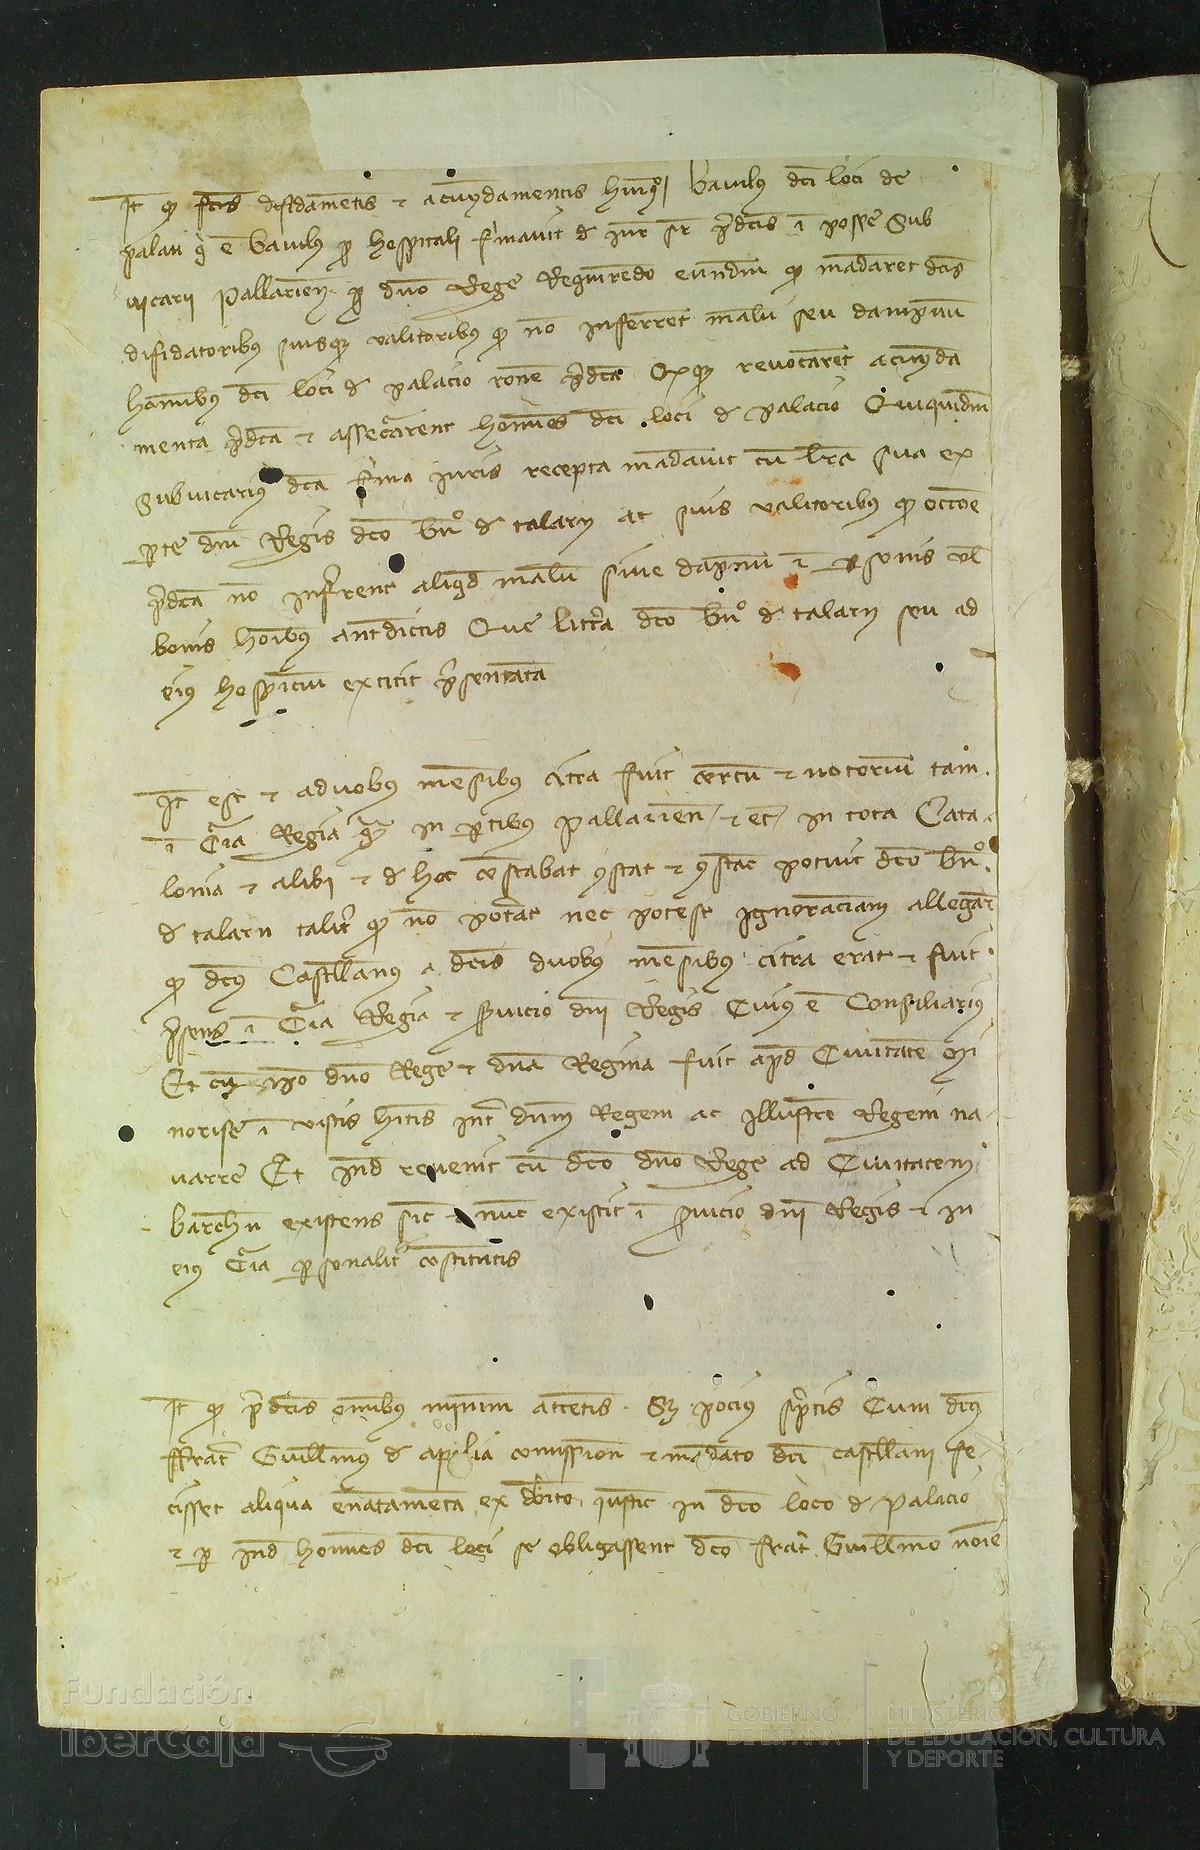 It q̄ fc̄is difidam̄etis ⁊ acuydamentis hui9 Baiulus dc̄i loci de
palau q̄ ē baiulus ꝓ hospitali firmavit d' iur̄ sr̄ p̄dcis ī posse Sub
vicarii pallarien̄ ꝓ dn̄o Rege Requirendo eundm̄ q̄ mādaret dc̄is
difidatoribus suisq3 valitoribus q̄ nō inferrent malū seu dampnū
homībus dc̄i loci d' palacio rōne p̄dc̄a Et q3 revocarēt acuyda
menta p̄dc̄a ⁊ assecurarent homines dc̄i loci d' palacio Quiquidm̄
Subvicarius dc̄a firma iuris recepta mādavit cū lr̄a sua ex
ꝑte dn̄i Regis dc̄o bn̄º d' talarn ac suis valitoribus q̄ occōe
p̄dc̄a nō inferrent aliq̄d malū sive dapnū ī ꝑsonis vl̄
bonis hoībus antedictis Que litt̄a dc̄o bn̄º d' talarn seu ad
eius hospiciū extitit p̄sentata
It est ⁊ a duobus mēsibus citra fuit certū ⁊ notoriū tam
ī Cūia Regia q̄ in ꝑtibus pallarien̄ ⁊ et̄ in tota Cata
lonia ⁊ alibi ⁊ d' hoc cōstabat ꝯstat ⁊ ꝯstar̄ potuit dc̄o bn̄º
d' talarn talit̄ q̄ nō pot̄at nec potest ignoranciam allegar̄
q̄ dc̄us Castellanus a dc̄is duobus mēsibus citra erat ⁊ fuit
p̄sens ī Cūia Regia ⁊ ẜvicio dn̄i Regis Cuius ē Consiliarius
Et cū ip̄o dn̄o Rege ⁊ dn̄a Regina fuit apd̄ Civitatē Mi
norise ī vistis hītis int̄ dn̄m Regem ac illustrē Regem na
varre Et ind̄ revenit cū dc̄o dn̄o Rege ad Civitatem
barch̄n existens sic ⁊ nūc existit ī ẜvicio dn̄i Regis ⁊ in
eius Cūia ꝑsonalit̄ cōstitutis
It q̄ p̄dcis om̄ibus minim̄ attētis S3 pocius sp̄tis Cum dc̄us
ffrat̄ Guillm̄us d' apilia comission̄ ⁊ mādato dc̄i castellani fe
cisset aliqua en̄atamēta ex dbito iustic̄ in dc̄o loco d' palacio
⁊ ꝑ ind̄ homines dc̄i loci se obligassent dc̄o frat̄ Guillm̄o nōie
Fundación
iberCaja
GOBIERNO
DE ESPAÑA
MINISTERIO
DE EDUCACIÓN, CULTURA
Y DEPORTE